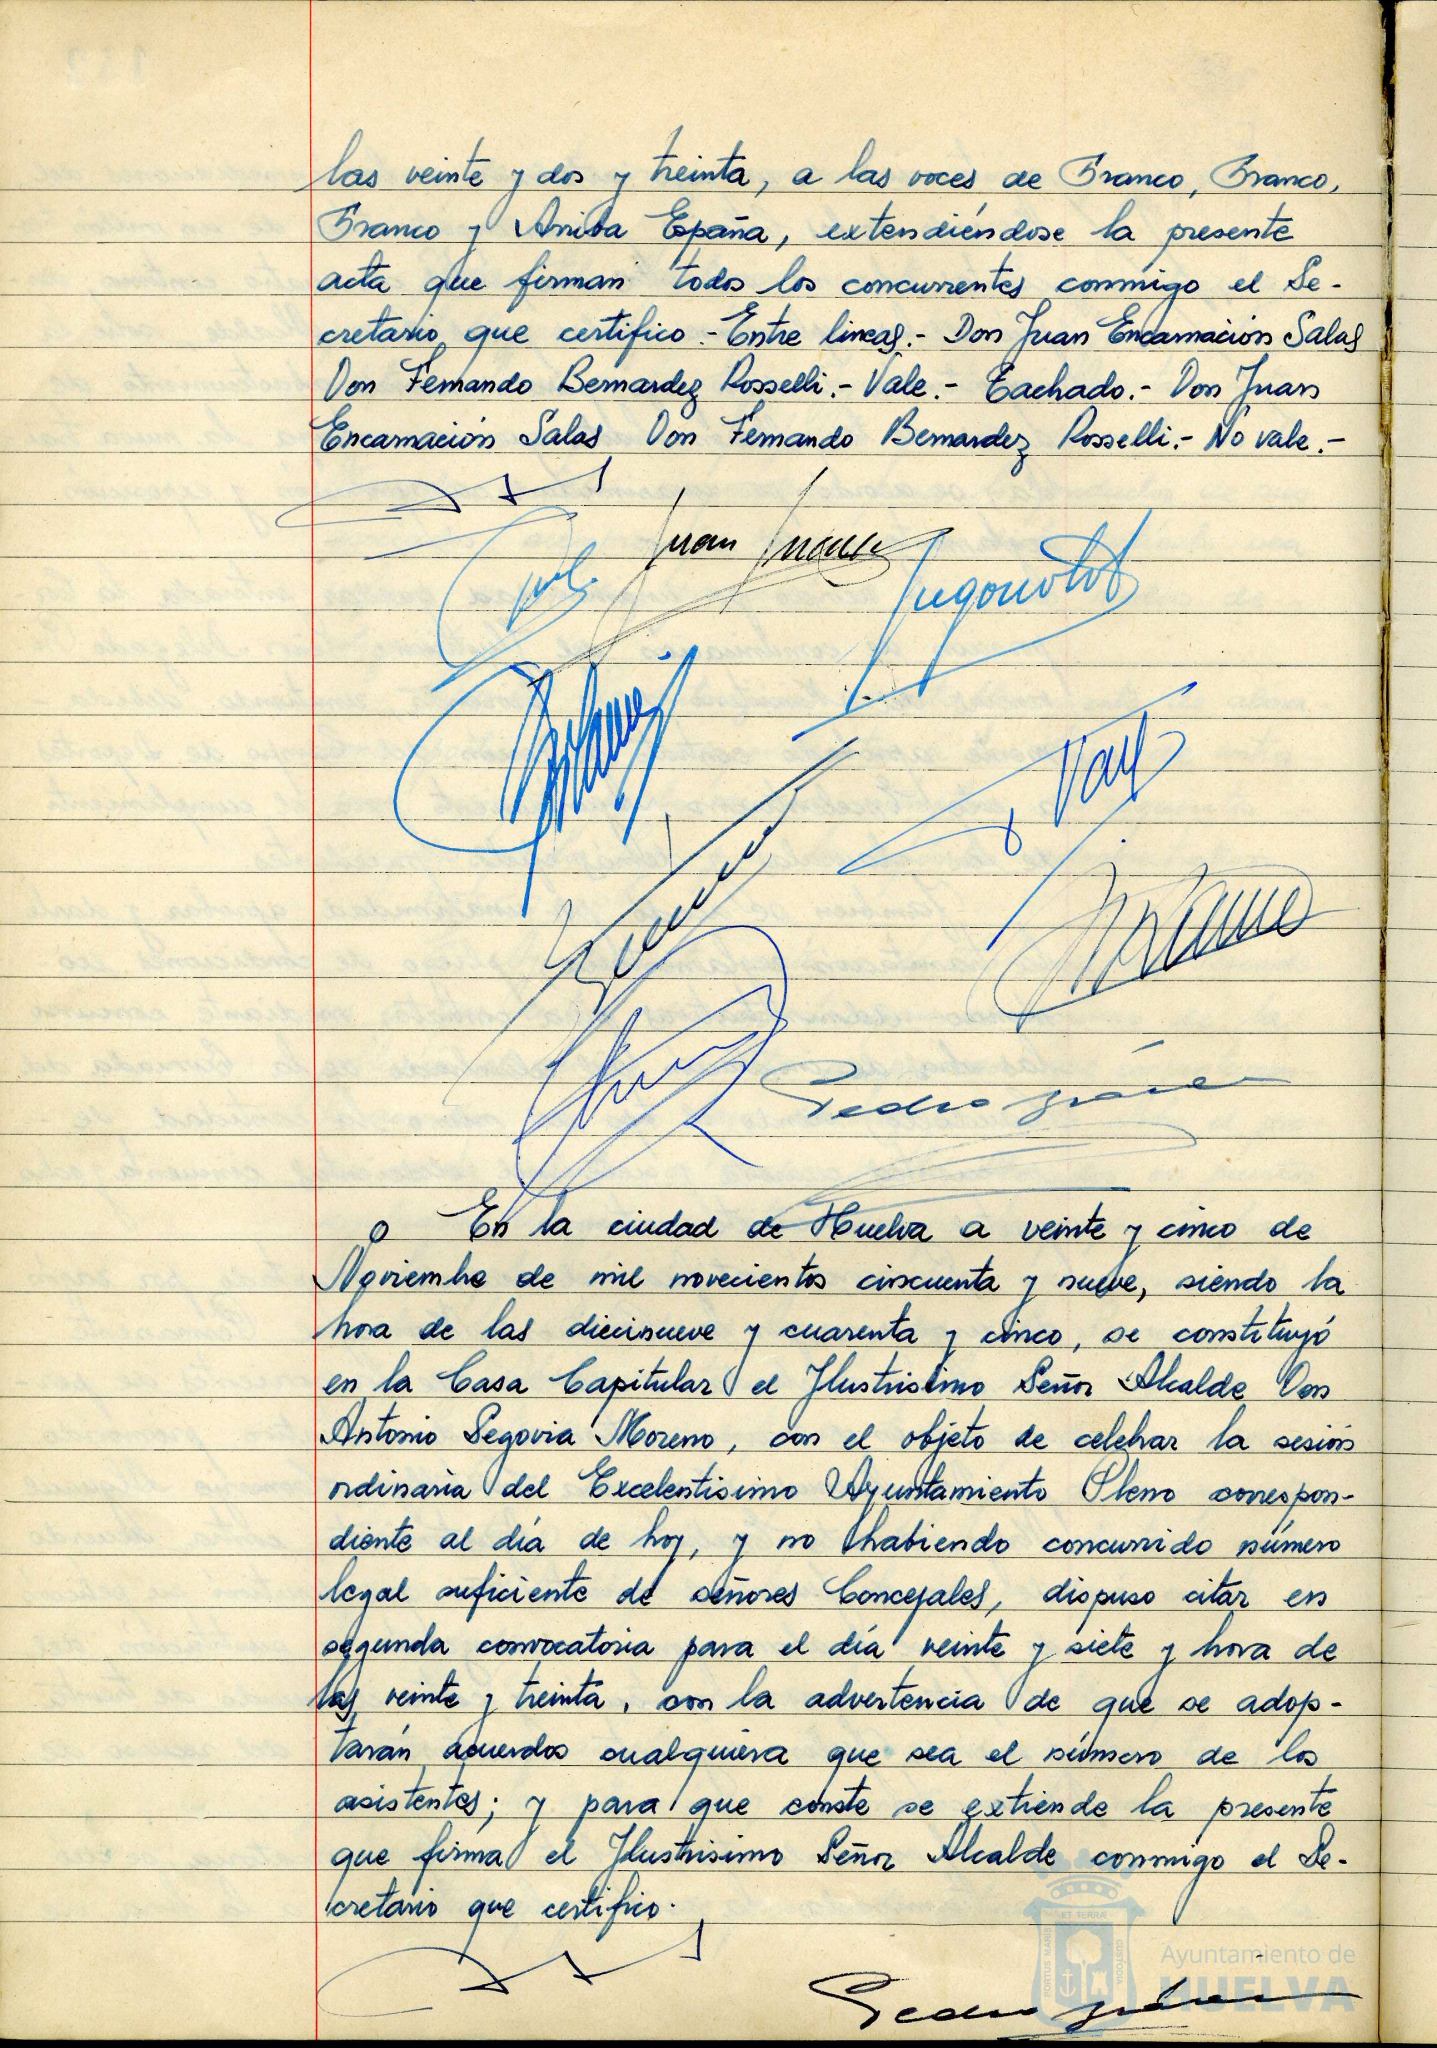 las veinte y dos y treinta, a las voces de Franco, Franco,
Franco y Arriba España, extendiéndose la presente
acta que firman todos los concurrentes conmigo el Se-
cretario que certifico.- Entre lineas.- Don Juan Encarnación Salas
Don Fernando Bernardez Rosselli.- Vale.- Tachado.- Don Juan
Encarnación Salas Don Fernando Bernardez Rosselli.- No vale.-
Juan
Pedro
En la ciudad de Huelva a veinte y cinco de
Noviembre de mil novecientos cincuenta y nueve, siendo la
hora de las diecinueve y cuarenta y cinco, se constituyó
en la Casa Capitular el Ilustrisimo Señor Alcalde Don
Antonio Segovia Moreno, con el objeto de celebrar la sesión
ordinaria del Excelentisimo Ayuntamiento Pleno correspon-
diente al día de hoy, y no habiendo concurrido número
legal suficiente de señores Concejales, dispuso citar en
segunda convocatoria para el día veinte y siete y hora de
las veinte y treinta, con la advertencia de que se adop-
tarán acuerdos cualquiera que sea el número de los
asistentes; y para que conste se extiende la presente
que firma el Ilustrisimo Señor Alcalde conmigo el Se-
cretario que certifico.
Pedro
Ayuntamiento de
HUELVA